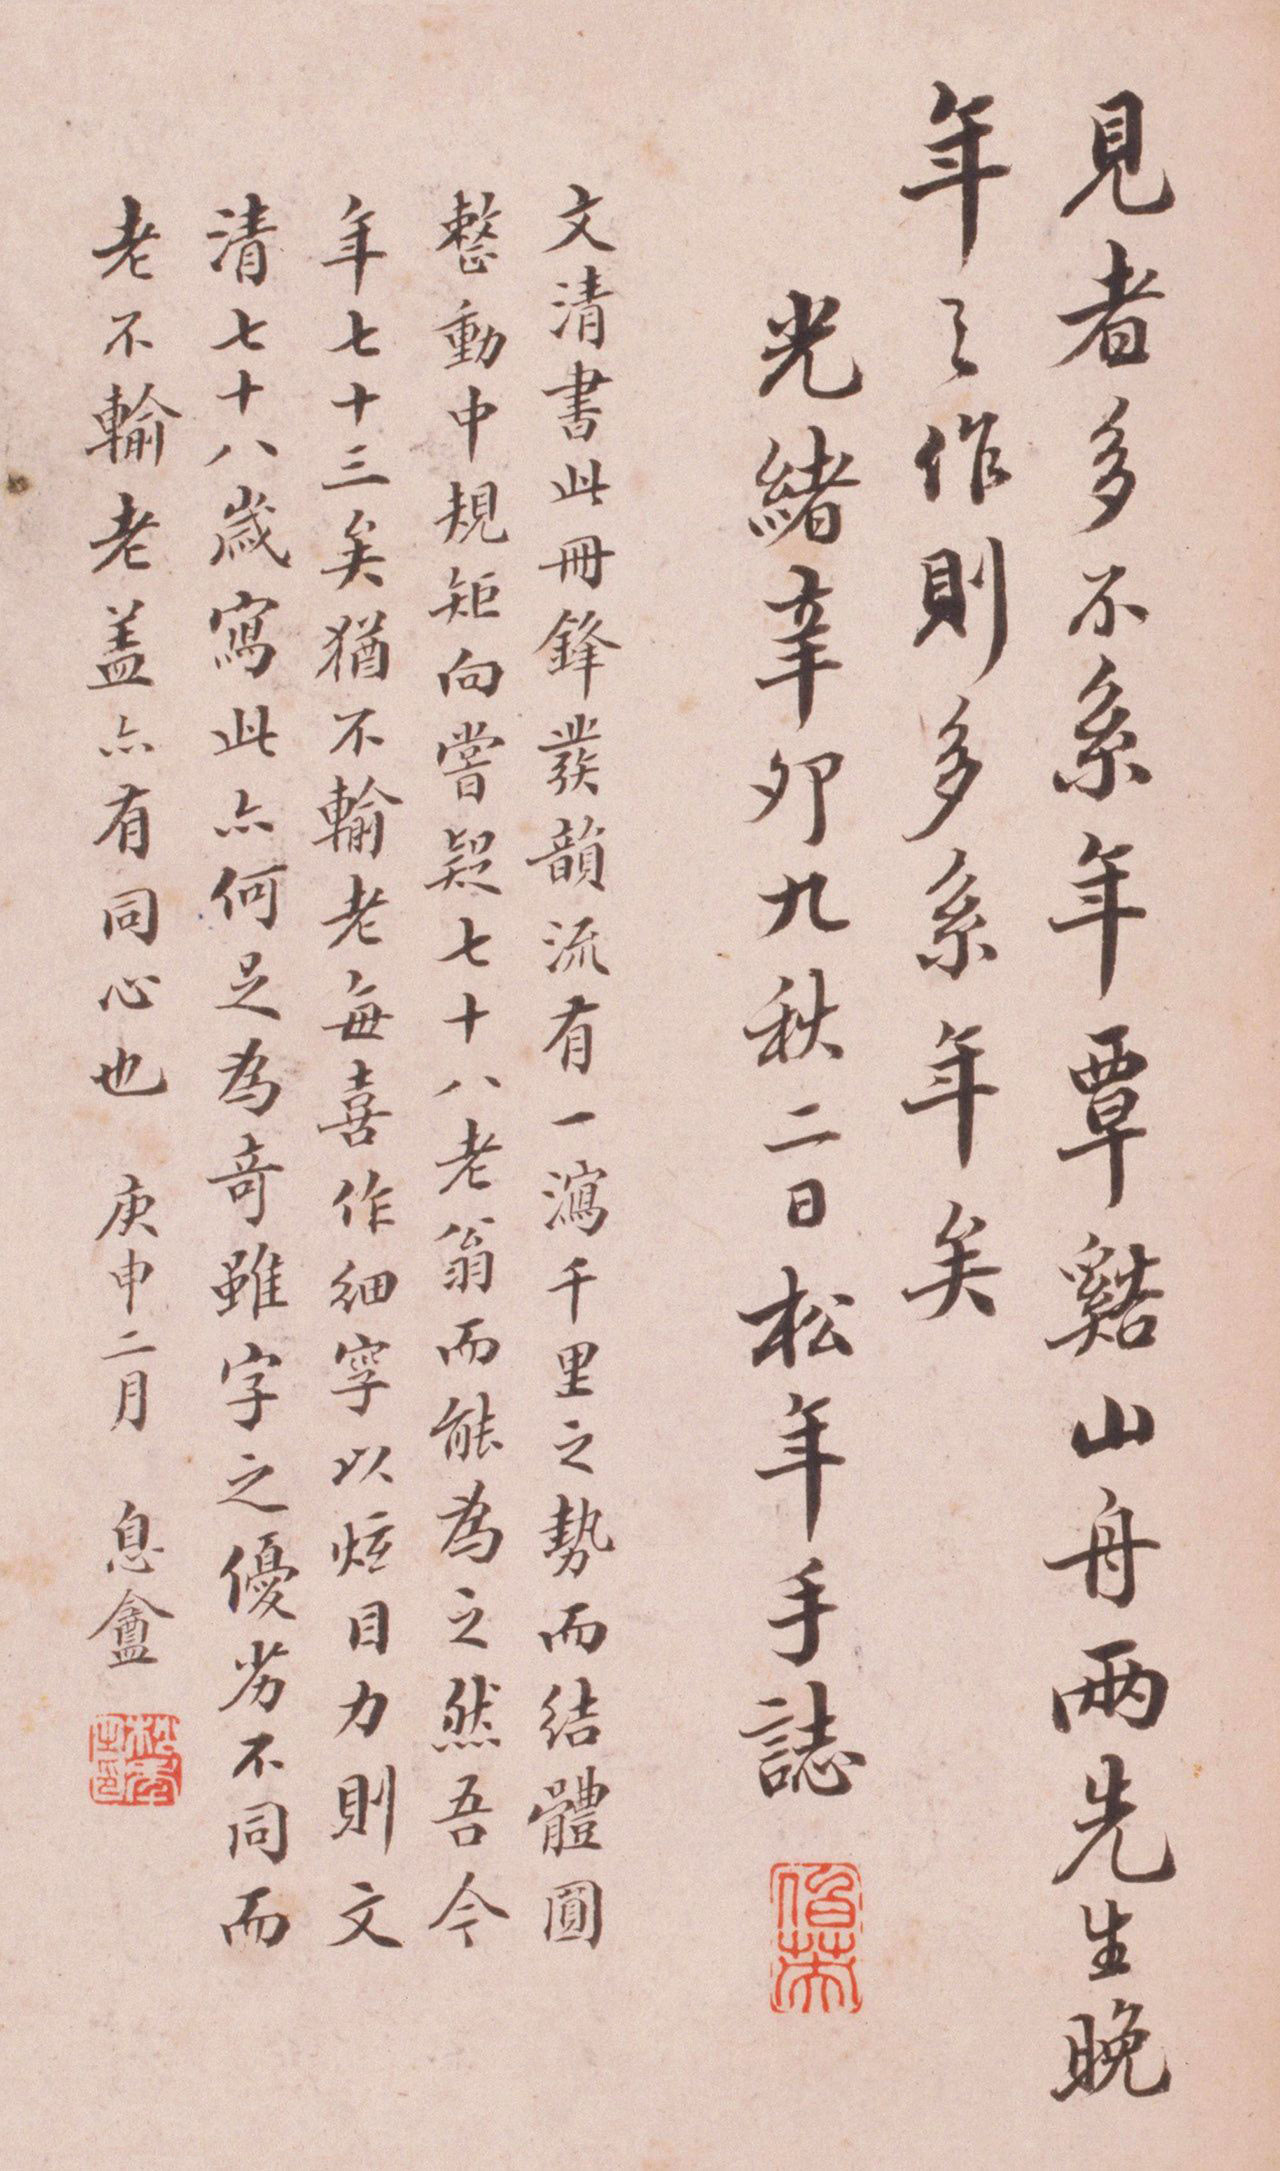 見者多不系年覃谿山舟兩先生晚
年之作則多系年矣
光緒辛卯九秋二日松年手誌
文清書此冊鋒發韻流有一瀉千里之勢而結體圓
整動中規矩向嘗疑七十八老翁而能為之然吾今
年七十三矣猶不輸老每喜作細字以炫目力則文
清七十八歲寫此亦何足為奇雖字之優劣不同而
老不輸老盖亦有同心也 庚申二月 息盦